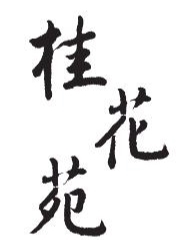 桂花苑